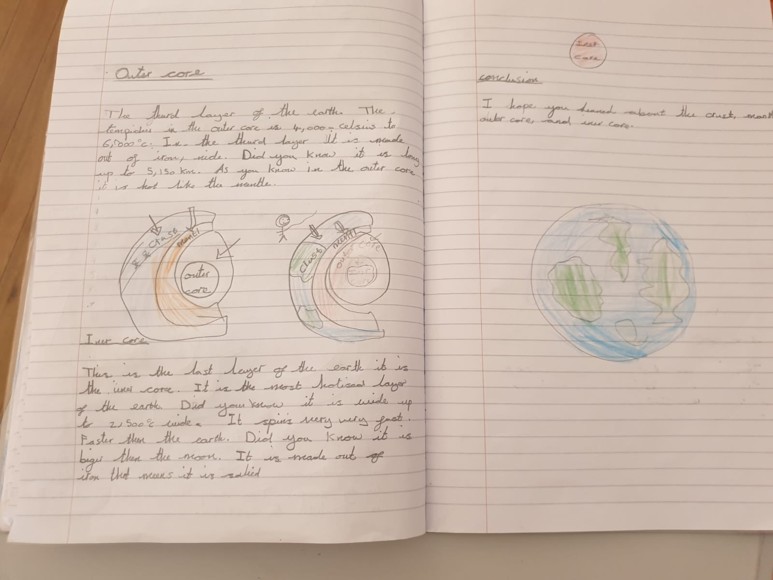 Outer core
The third layer of the earth. The
in the outer core is 4,000 celsius to
6,000°c. In the third layer it is made
out of iron, nicle. Did you know it is
up to 5,150 km. As you know in the outer core
it is hot like the mantle.
Crust
mantl
outer
core
Crust
mantl
outer core
Iner core
This is the last layer of the earth it is
the iner core. It is the most hotical layer
of the earth. Did you know it is wide up
to 2,500°c wide. It spins very very fast.
Faster than the earth. Did you know it is
biger than the moon. It is made out of
iron that means it is solied
Iner
core
conclusion
I hope you learned about the crust, mantl
outer core, and iner core.